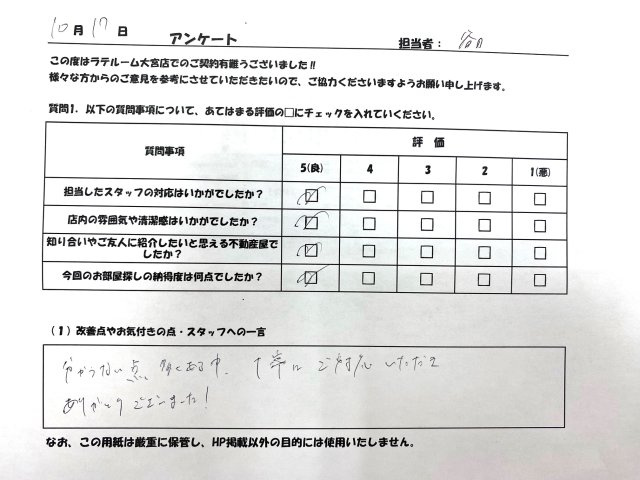 10月17日
アンケート
担当者：
この度はラテルーム大宮店でのご契約有難うございました!!
様々な方からのご意見を参考にさせていただきたいので、ご協力くださいますようお願い申し上げます。
質問1. 以下の質問事項について、あてはまる評価の□にチェックを入れていください。
質問事項
評 価
5(良) 4 3 2 1(悪)
担当したスタッフの対応はいかがでしたか？
店内の雰囲気や清潔感はいかがでしたか？
知り合いやご友人に紹介したいと思える不動産屋で
したか？
今回のお部屋探しの納得度は何点でしたか？
(1) 改善点やお気付きの点・スタッフへの一言
分からない点、多くある中、丁寧に ご対応 いただき
ありがとうございました！
なお、この用紙は厳重に保管し、HP掲載以外の目的には使用いたしません。